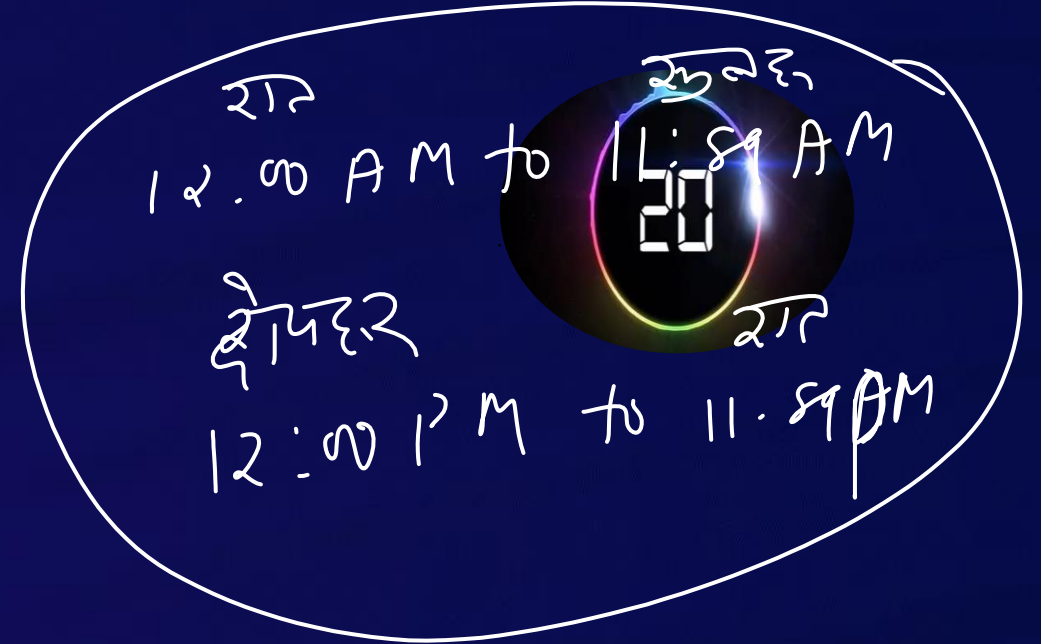 रात सुबह
12.00 AM to 11:59 AM
20
दोपहर रात
12:00 PM to 11.59 PM